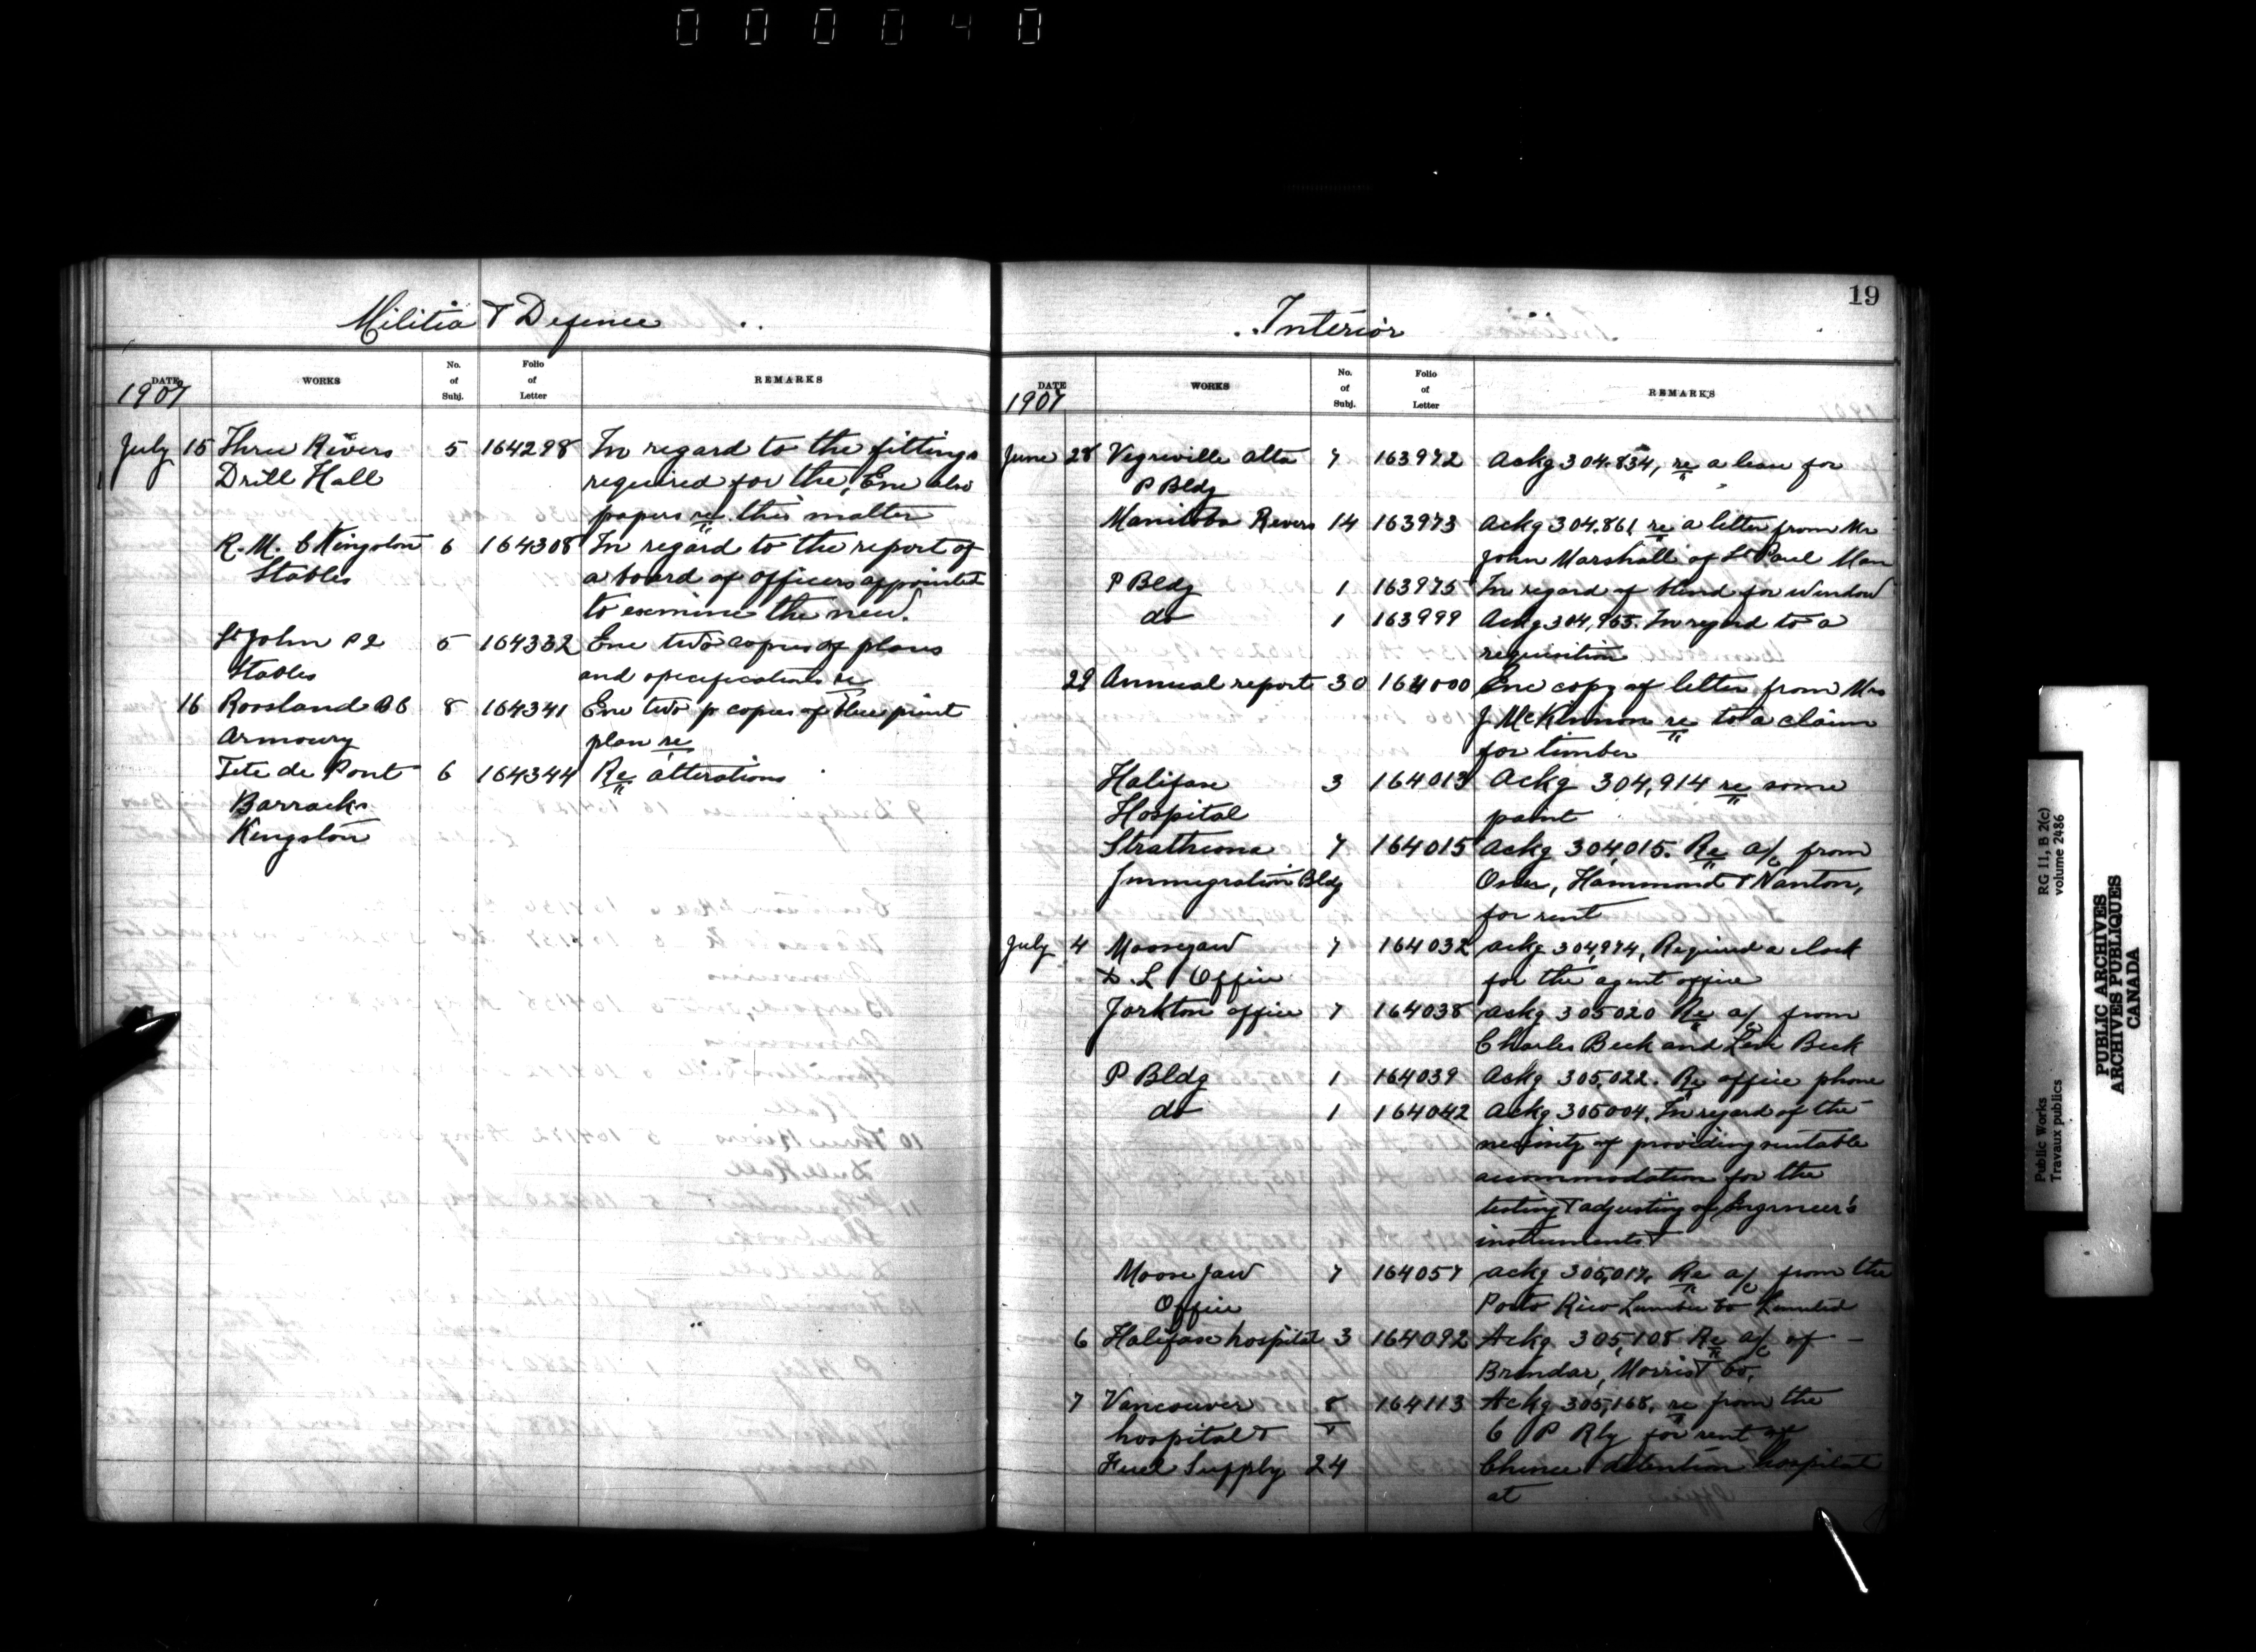 000040
Militia & Defence
DATE WORKS No. of Subj. Folio of Letter REMARKS
1907
July 15 Three Rivers 5 164298 In regard to the fittings
Drill Hall required for the, Enc also
papers re this matter
R. M. C Kingston 6 164308 In regard to the report of
Stables a board of officers appointed
to examine the new.
St John P2 5 164332 Enc two copies of plans
Stables and specifications re
16 Rossland BC 8 164341 Enc two p copies of blue print
Armoury plan re
Tete de Pont 6 164344 Re alterations
Barracks
Kingston
19
Interior
DATE WORKS No. of Subj. Folio of Letter REMARKS
1907
June 28 Vegriville Alta 7 163972 Ackg 304.834, re a lease for
P Bldg
Manitoba Rivers 14 163973 Ackg 304.861 re a letter from Mr
John Marshall of St Paul Man
P Bldg 1 163975 In regard of blind for window
do 1 163999 Ackg 304,965. In regard to a
requisition
29 Annual report 30 164000 Enc copy of letter from Mrs
J McKinnon re to a claim
for timber
Halifax 3 164013 Ackg 304,914 re some
Hospital paint
Strathcona 7 164015 Ackg 304,015. Re a/c from
Immigration Bldg Osler, Hammond & Nanton,
for rent
July 4 Moosejaw 7 164032 Ackg 304,974, Required a clock
D. L Office for the agent office
Yorkton office 7 164038 Ackg 305020 Re a/c from
Charles Beck and Levi Beck
P Bldg 1 164039 Ackg 305,022. Re office phone
do 1 164042 Ackg 305004. In regard of the
necissity of providing suitable
accommodation for the
testing & adjusting of Engineer's
instruments &
Moose Jaw 7 164057 Ackg 305,017, Re a/c from the
Office Porto Rico Lumber Co Limited
6 Halifax hospital 3 164092 Ackg 305,108 Re a/c of —
Brendar, Morris & Co,
7 Vancouver 8 164113 Ackg 305,168, re from the
hospital & & C P Rly for rent of
Fuel Supply 24 Chinese detention hospital
at
Public Works RG 11, B 2(c)
Travaux publics volume 2486
PUBLIC ARCHIVES
ARCHIVES PUBLIQUES
CANADA